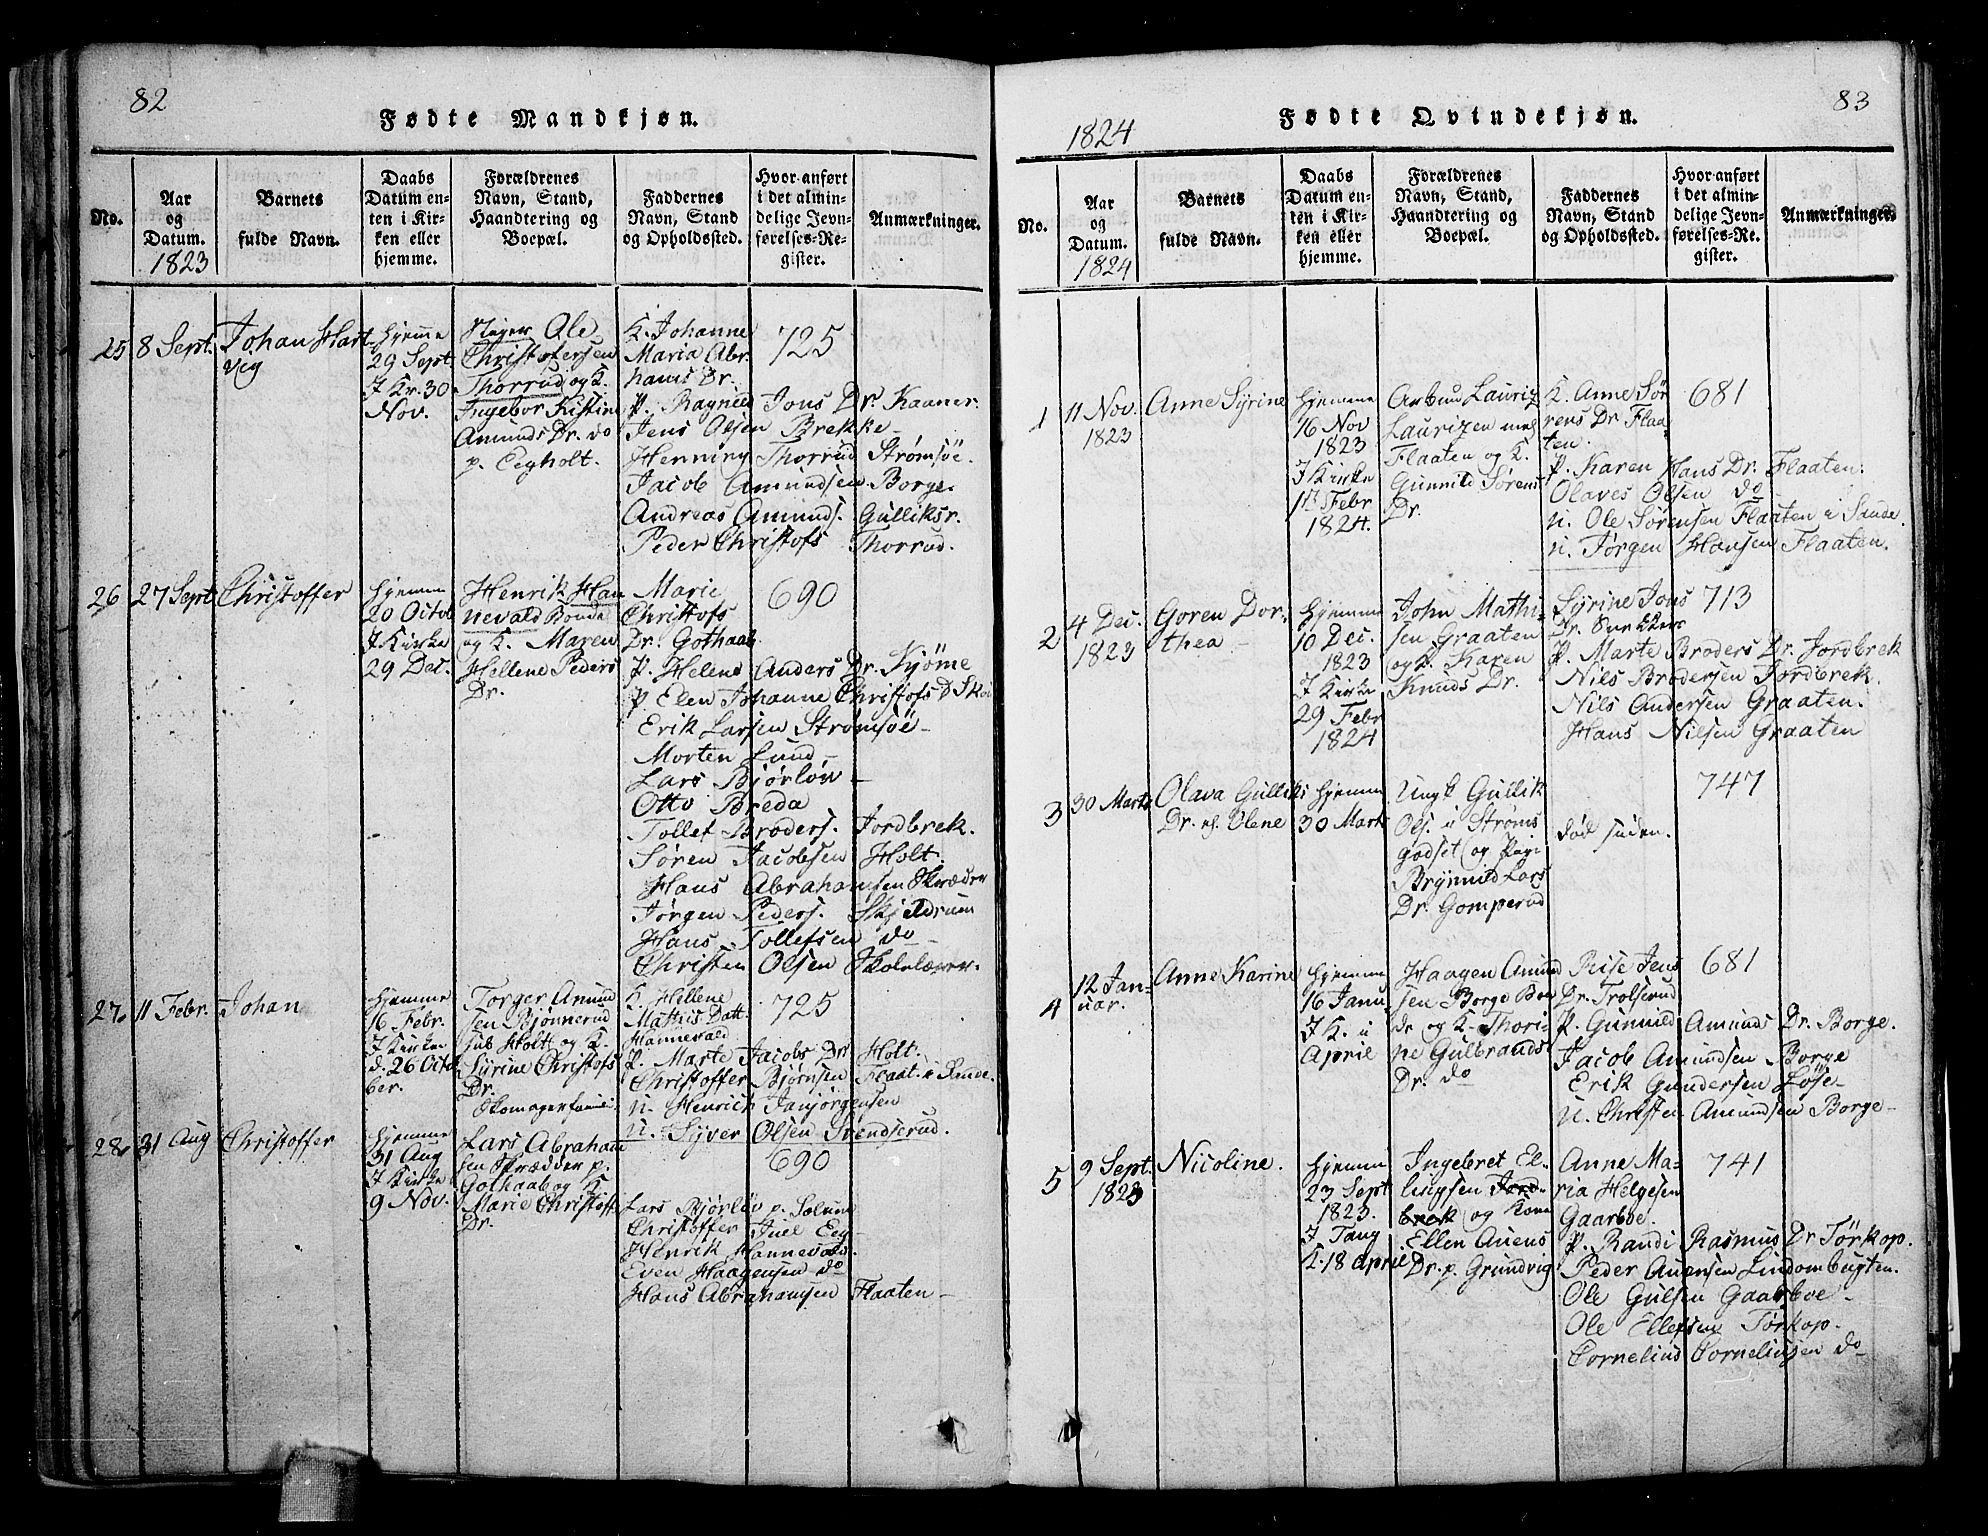 82
Fødte Mandkjøn.
No.
Aar
og
Datum.
1823
Barnets
fulde Navn.
Daabs
Datum en-
ten i Kir-
ken eller
hjemme.
Forældrenes
Navn, Stand,
Haandtering og
Boepæl.
Faddernes
Navn, Stand
og Opholdssted.
Hvor anført
i det almin-
delige Jevn-
førelses-Re-
gister.
Anmærkninger.
25
8 Sept.
Johan Hart
vig
Hjemme
29 Sept.
I Kr. 30
Nov.
Ole
Christofersen
Thorrud og K.
Ingebor Kistine
Amunds Dr. do
p. Eegholt.
K. Johanne
Maria Abr.
hams Dr.
P. Ragnild Jons Dr. Kaaner.
Jens Olsen Brekke
Henning Thorrud Strømsöe.
Jacob Amundsen Borge.
Andreas Amunds. Gulliksr.
Peder Christofs Thorrud.
725
26
27 Sept
Christoffer
Hjemme
20 Octob
I Kirke
29 Dec.
Henrik Han
nevald Bonde
og K. Maren
Hellene Peders
Dr.
Marie
Christofs
Dr. Gothaab.
P. Helene Anders Dr. Kjöme
P. Elen Johanne Christofs D
Erik Larsen Strømsöe
Morten Lund
Lars Bjørløv
Otto Breda
Tollef Broders. Jordbrek.
Søren Jacobsen Holt.
Hans Abrahamsen Skræder
Jørgen Peders. Skjeldrum
Hans Tollefsen do
Christen Olsen Skolelærer.
690
27.
11 Febr.
Johan
Hjemme
16 Febr.
I Kirken
d. 26 Octo
ber.
Torger Amund
sen Bjønnerud
Holt og K.
Syrine Christofs
Dr.
K. Hellene
Mathis Datt.
Hannevald
P. Marte Jacobs Dr Holt.
Christoffer Bjørnsen Flaat. i Sande.
U. Henrich Janjörgensen
U. Syver Olsen Svendserud.
725
28.
31 Aug
Christoffer
Hjemme
31 Aug
I Kirke
9 Nov.
Lars Abraham
sen Skrædder p.
Gothaab og K.
Marie Christoffs
Dr.
Lars Bjørløv p. Solum
Christoffer Juel Eeg
Henrik Hannevald.
Even Haagensen do
Hans Abrahamsen Flaaten
690
83
Fødte Qvindekjøn.
1824
No.
Aar
og
Datum.
1824
Barnets
fulde Navn.
Daabs
Datum en-
ten i Kir-
ken eller
hjemme.
Forældrenes
Navn, Stand,
Haandtering og
Boepæl.
Faddernes
Navn, Stand
og Opholdssted.
Hvor anført
i det almin-
delige Jevn-
førelses-Re-
gister.
Anmærkninger.
1
11 Nov.
1823
Anne Syrine
Hjemme
16 Nov
1823
I Kirke
Febr
1824.
Lauriz
Laurizen
Flaaten og K.
Gunnild Sørens
Dr.
K. Anne Sø
rens Dr. Flaa
ten.
P. Karen Hans Dr. Flaaten.
Olaves Olsen do
U. Ole Sørensen Flaaten i Sande.
U. Jørgen Hansen Flaaten.
681
2
4 Dec.
1823
Goren Dor
thea
Hjemme
10 Dec.
1823
I Kirke
29 Febr
1824
John Mathi
sen Graaten
og K. Karen
Knuds Dr.
Syrine Jons
Dr.
P. Marte Broders Dr. Jordbrek
Nils Brodersen Jordbrek.
Nils Andersen Graaten.
Hans Nilsen Graaten
713
3
30 Marts
Olava Gulliks
Dr. Olene
Hjemme
30 Marts
Ungk Gullik
Ols. i Strøms
godset og Pige
Brynnild Lars
Dr. Gomperud
død siden.
747
4
12 Jan-
uar.
Anne Karine
Hjemme
16 Janu
I K. i
April
Haagen Amund
sen Borge Bon
de og K. Thori-
ne Gulbrands
Dr. do
Jens
Dr. Trolserud
P. Gunnild Amunds Dr. Borge.
Jacob Amundsen Borge
Erik Gundersen Löse
U. Christen Amundsen Borge
681
5
9 Sept.
1823
Nicoline.
Hjemme
23 Sept
1823.
I Tang
K. 18 April
Ingebret El-
lingsen Jord-
brek og Kone
Ellen Auens
Dr. p. Grundvig
Anne Ma-
ria Helgesen
Gaarboe.
P. Randi Rasmus Dr Tørkop.
Peder Auensen Lindom bugten.
Ole Gulsen Gaarboe
Ole Ellefsen Tørkop.
Cornelius Corneliusen do
741